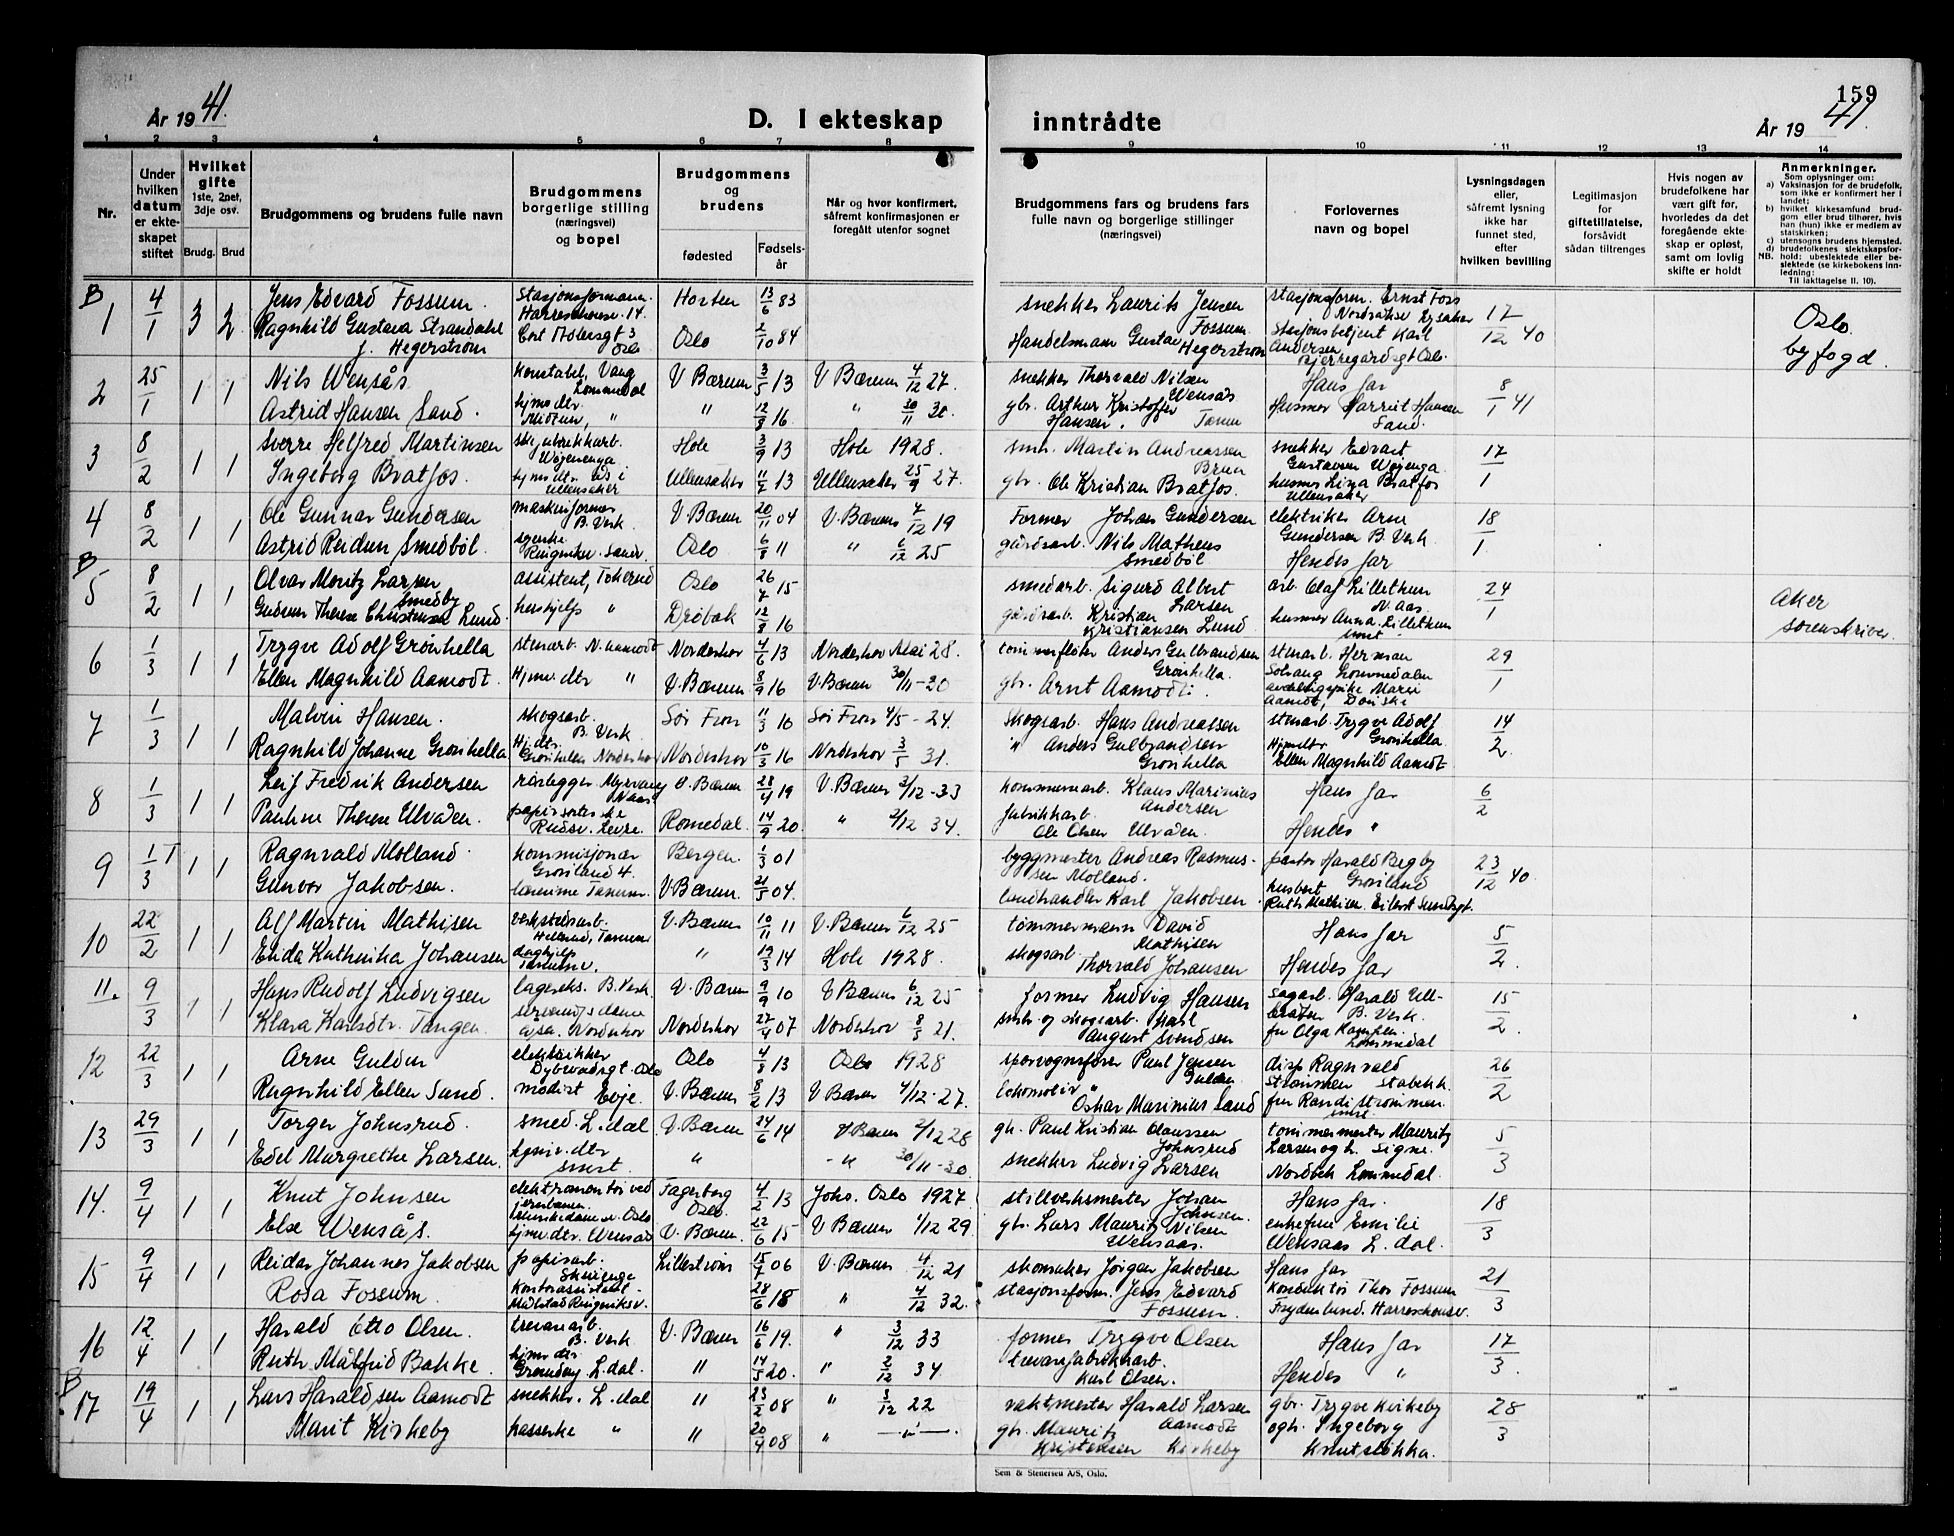 159
År 1941.
D. I ekteskap inntrådte
År 1941.
1 2 3 4 5 6 7 8 9 10 11 12 13 14
Nr.
Under hvilken datum er ekteskapet stiftet
Hvilket gifte 1ste, 2net, 3dje osv.
Brudg. Brud
Brudgommens og brudens fulle navn
Brudgommens borgerlige stilling (næringsvei) og bopel
Brudgommens og brudens
fødested
Fødselsår
Når og hvor konfirmert, såfremt konfirmasjonen er foregått utenfor sognet
Brudgommens fars og brudens fars fulle navn og borgerlige stillinger (næringsvei)
Forlovernes navn og bopel
Lysningsdagen eller, såfremt lysning ikke har funnet sted, efter hvilken bevilling
Legitimasjon for giftetillatelse, forsåvidt sådan tiltrenges
Hvis nogen av brudefolkene har vært gift før, hvorledes da det foregående ekteskap er opløst, samt om lovlig skifte er holdt
Anmerkninger.
Som oplysninger om:
a) Vaksinasjon for de brudefolk, som ikke er konfirmert her i landet;
b) hvilket kirkesamfund brudgom eller brud tilhører, hvis han (hun) ikke er medlem av statskirken;
c) utensogns brudens hjemsted.
d) brudefolkenes slektskapsforhold: ubeslektede eller beslektede (se kirkebokens innledning:
NB. Til iakttagelse II. 10).
B 1 4/1 3 2 Jens Edvard Fossum. Stasjonsformann. Harreschouv. 14. Horten 13/6 83 snekker Laurits Jensen Fossum stasjonsform. Ernst Foss Lysaker 17/12 40 Oslo byfogd.
Ragnhild Gustava Strandahl f. Hegerstrøm Oslo Oslo 2/10 84 Handelsmann Gustav Hegerstrøm stasjonsbetjent Karl Andersen Oslo.
2 25/1 1 1 Nils Wensås konstabel, Vang Lommedal V Bærum 3/5 13 V Bærum 4/12 27. snekker Thorvald Nilsen Wensås Hans far 8/1 41
Astrid Hansen Sand. hjmv. dtr. " " 12/8 16 " 30/11 30. gbr. Arthur Kristoffer Hansen. Tanum Husmor Harriet Hansen Sand.
3 8/2 1 1 Sverre Helfred Martinsen Hole 3/9 13 Hole 1928. smbr. Martin Andreassen Bruun snekker Edvart Gustavsen Wøyenga. 17/1
Ingeborg Bratfos. Ullensaker Ullensaker 11/7 13 Ullensaker 25/9 27. gbr. Ole Kristian Bratfos. husmor Lina Bratfos Ullensaker
4 8/2 1 1 Ole Gunnar Gundersen maskinformer B. Verk V. Bærum 20/11 04 V. Bærum 7/12 19 Former Johan Gundersen elektriker Arne Gundersen B. Verk 18/1
Astrid Reidun Smedbøl. Oslo 6/8 11 " 6/12 25 gårdsarb. Nils Mathens Smedbøl Hendes far
B 5 8/2 1 1 Olvar Moritz Larsen Smedby assistent, Tokerud Oslo 26/7 15 smedarb. Sigurd Albert Larsen arb. Olaf Lillethun Naas. 24/1 Aker sorenskriver.
Gudrun Therese Christensen Lund. hushjelp " Drøbak 12/8 16 gårdsarb. Kristian Kristiansen Lund husmor Anna Lillethun smst.
6 1/3 1 1 Trygve Adolf Grønhella stenarb. N. aamodt Norderhov 4/6 13 Norderhov Mai 28. tømmerfløter Anders Gulbrandsen Grønhella. stenarb. Herman Solhaug Lommedalen 29/1
Ellen Magnhild Aamodt. Hjmv. dtr " V. Bærum 8/9 16 V. Bærum 30/11-30 gbr. Arnt Aamodt. Marie Aamodt,
7 1/3 1 1 Malvin Hansen. skogsarb. B. Verk Sør Fron 11/3 10 Sør Fron 4/5-24. Skogsarb. Hans Andreassen stenarb. Trygve Adolf Grønhella. 14/2
Ragnhild Johanne Grønhella Hj. dtr. Grønhella Norderhov Norderhov 10/3 16 Norderhov 3/5 31. " Anders Gulbrandsen Grønhella Hjmv dtr Ellen Magnhild Aamodt
8 1/3 1 1 Leif Fredrik Andersen rørlegger Myrvang Naas V. Bærum 28/4 19 V. Bærum 3/12-33 kommunearb. Klaus Marinius Andersen Hans far 6/2
Pauline Therese Ulvåen. papirsorterske Rudsv. Levre. Romedal. 14/9 20. " 2/12 34. fabrikkarb. Ole Olsen Ulvåen. Hendes "
9 1/3 1 1 Ragnvald Molland. kommisjonær Grønland 4. Bergen. 1/3 01 byggmester Andreas Rasmussen Molland. pastor Harald Begby Grønland 23/12 40
Gunvor Jakobsen. lærerinne Tanum. V. Bærum. 21/5 04. landhandler Karl Jakobsen Ruth Mathisen, Eilert Sundtsgt.
10 22/2 1 1 Alf Martin Mathisen verkstedsarb. Tanum V. Bærum 10/11 11 V. Bærum 6/12 25 tømmermann David Mathisen Hans far 5/2.
Enda Kathrika Johansen daghjelp Tanumv. " 19/3 14 Hole 1928. skogsarb. Thorvald Johansen Hendes far
11. 9/3 1 1 Hans Rudolf Ludvigsen lagereks. B. Verk. V. Bærum 9/9 10 V Bærum 6/12 25 former Ludvig Hansen sagarb. Harald B. Verk. 15/2.
Klara Karlsdtr. Tangen. Norderhov Norderhov 27/4 07 Norderhov 8/5 21. smbr. og skogsarb. Karl August Svendsen fru Olga Kampen. Lommedal
12 22/3 1 1 Arne Gulden elektrikker Dybwadsgt. Oslo Oslo 4/8 13 Oslo 1928 sporvognsfører Paul Jensen Gulden disp. Ragnvald Strømmen Stabekk. 26/2
Ragnhild Ellen Sand. modist Evje. V. Bærum 8/2 13 V Bærum 4/12-27. lokomotiv " Oskar Marinius Sand fru Randi Strømmen. smst.
13 29/3 1 1 Torger Johnsrud. smed. L. dal. V. Bærum 24/6 14 V Bærum 2/12 28 gbr. Paul Kristian Olaussen Johnsrud tømmermester Mauritz Larsen og h. Signe. 5/3
Edel Margrethe Larsen. hjmv. dtr. smst. " - " 30/11-30 snekker Ludvig Larsen Nordbek Lommedal.
14. 9/4 1 1 Knut Johnsen elektromontør ved jernbanen. Oslo Fagerborg Oslo. 4/2 13 Joh. Oslo 1927 stillverksmester Johan Johnsen. Hans far. 18/3
Else Wensås. hjmv. dtr. Wensås V. Bærum. 22/6 15 V Bærum 1/12 29 gbr. Lars Mauritz Nilsen Wensaas. enkefrue Emilie Wensaas L. dal.
15 9/4 1 1 Reidar Johannes Jakobsen papirarb. Lillestrøm 15/7 06 V. Bærum 4/12 21 skomaker Jørgen Jakobsen Hans far 21/3
Rosa Fossum. Kontorassistent. Ringeriksv. 28/6 18 " 4/12 32. stasjonsform. Jens Edvard Fossum. Konduktør Thor Fossum Frydenlund. Harreschousv.
16 12/4 1 1 Harald Otto Olsen. trevarearb. B. Verk V. Bærum 16/6 19. " 3/12 33 former Trygve Olsen Hans far 17/3.
Ruth Målfrid Bakke. hjmv. dtr. L. dal. " 14/5 20. " 2/12 34. trevarefabrikkarb. Karl Olsen. Hendes "
B 17 19/4 1 1 Lars Haraldsen Aamodt snekker. L. dal " 23/2 08 " 3/12 22 vaktmester Harald Larsen Aamodt gbr. Trygve Kirkeby 28/3
Marit Kirkeby kasserske " " 20/4 08 " — " — gbr. Mauritz Kristensen Kirkeby ogh. Ingeborg Knutsløkka.
Sem & Stenersen A/S, Oslo.